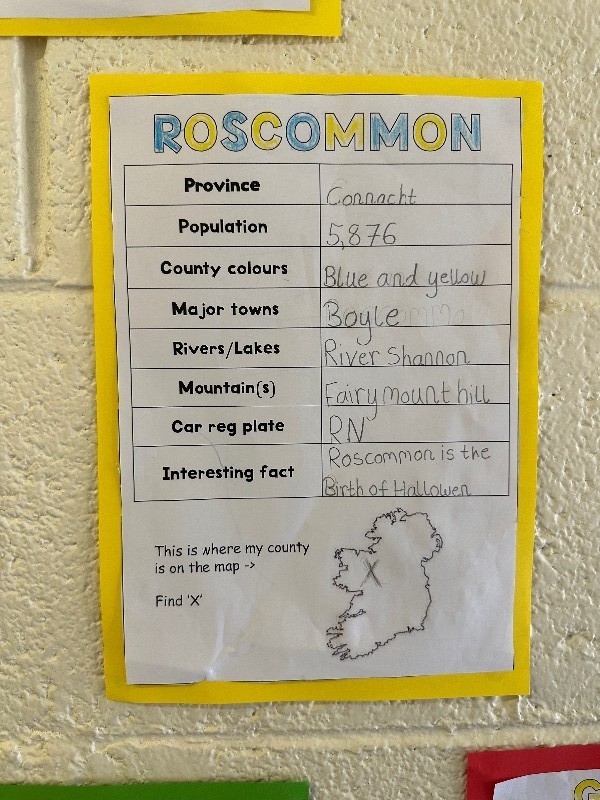 ROSCOMMON
Province Connacht
Population 5,876
County colours Blue and yellow
Major towns Boyle
Rivers/Lakes River Shannon
Mountain(s) Fairymount hill
Car reg plate RN
Interesting fact Roscommon is the
Birth of Hallowen
This is where my county
is on the map ->
Find 'X'
X
G